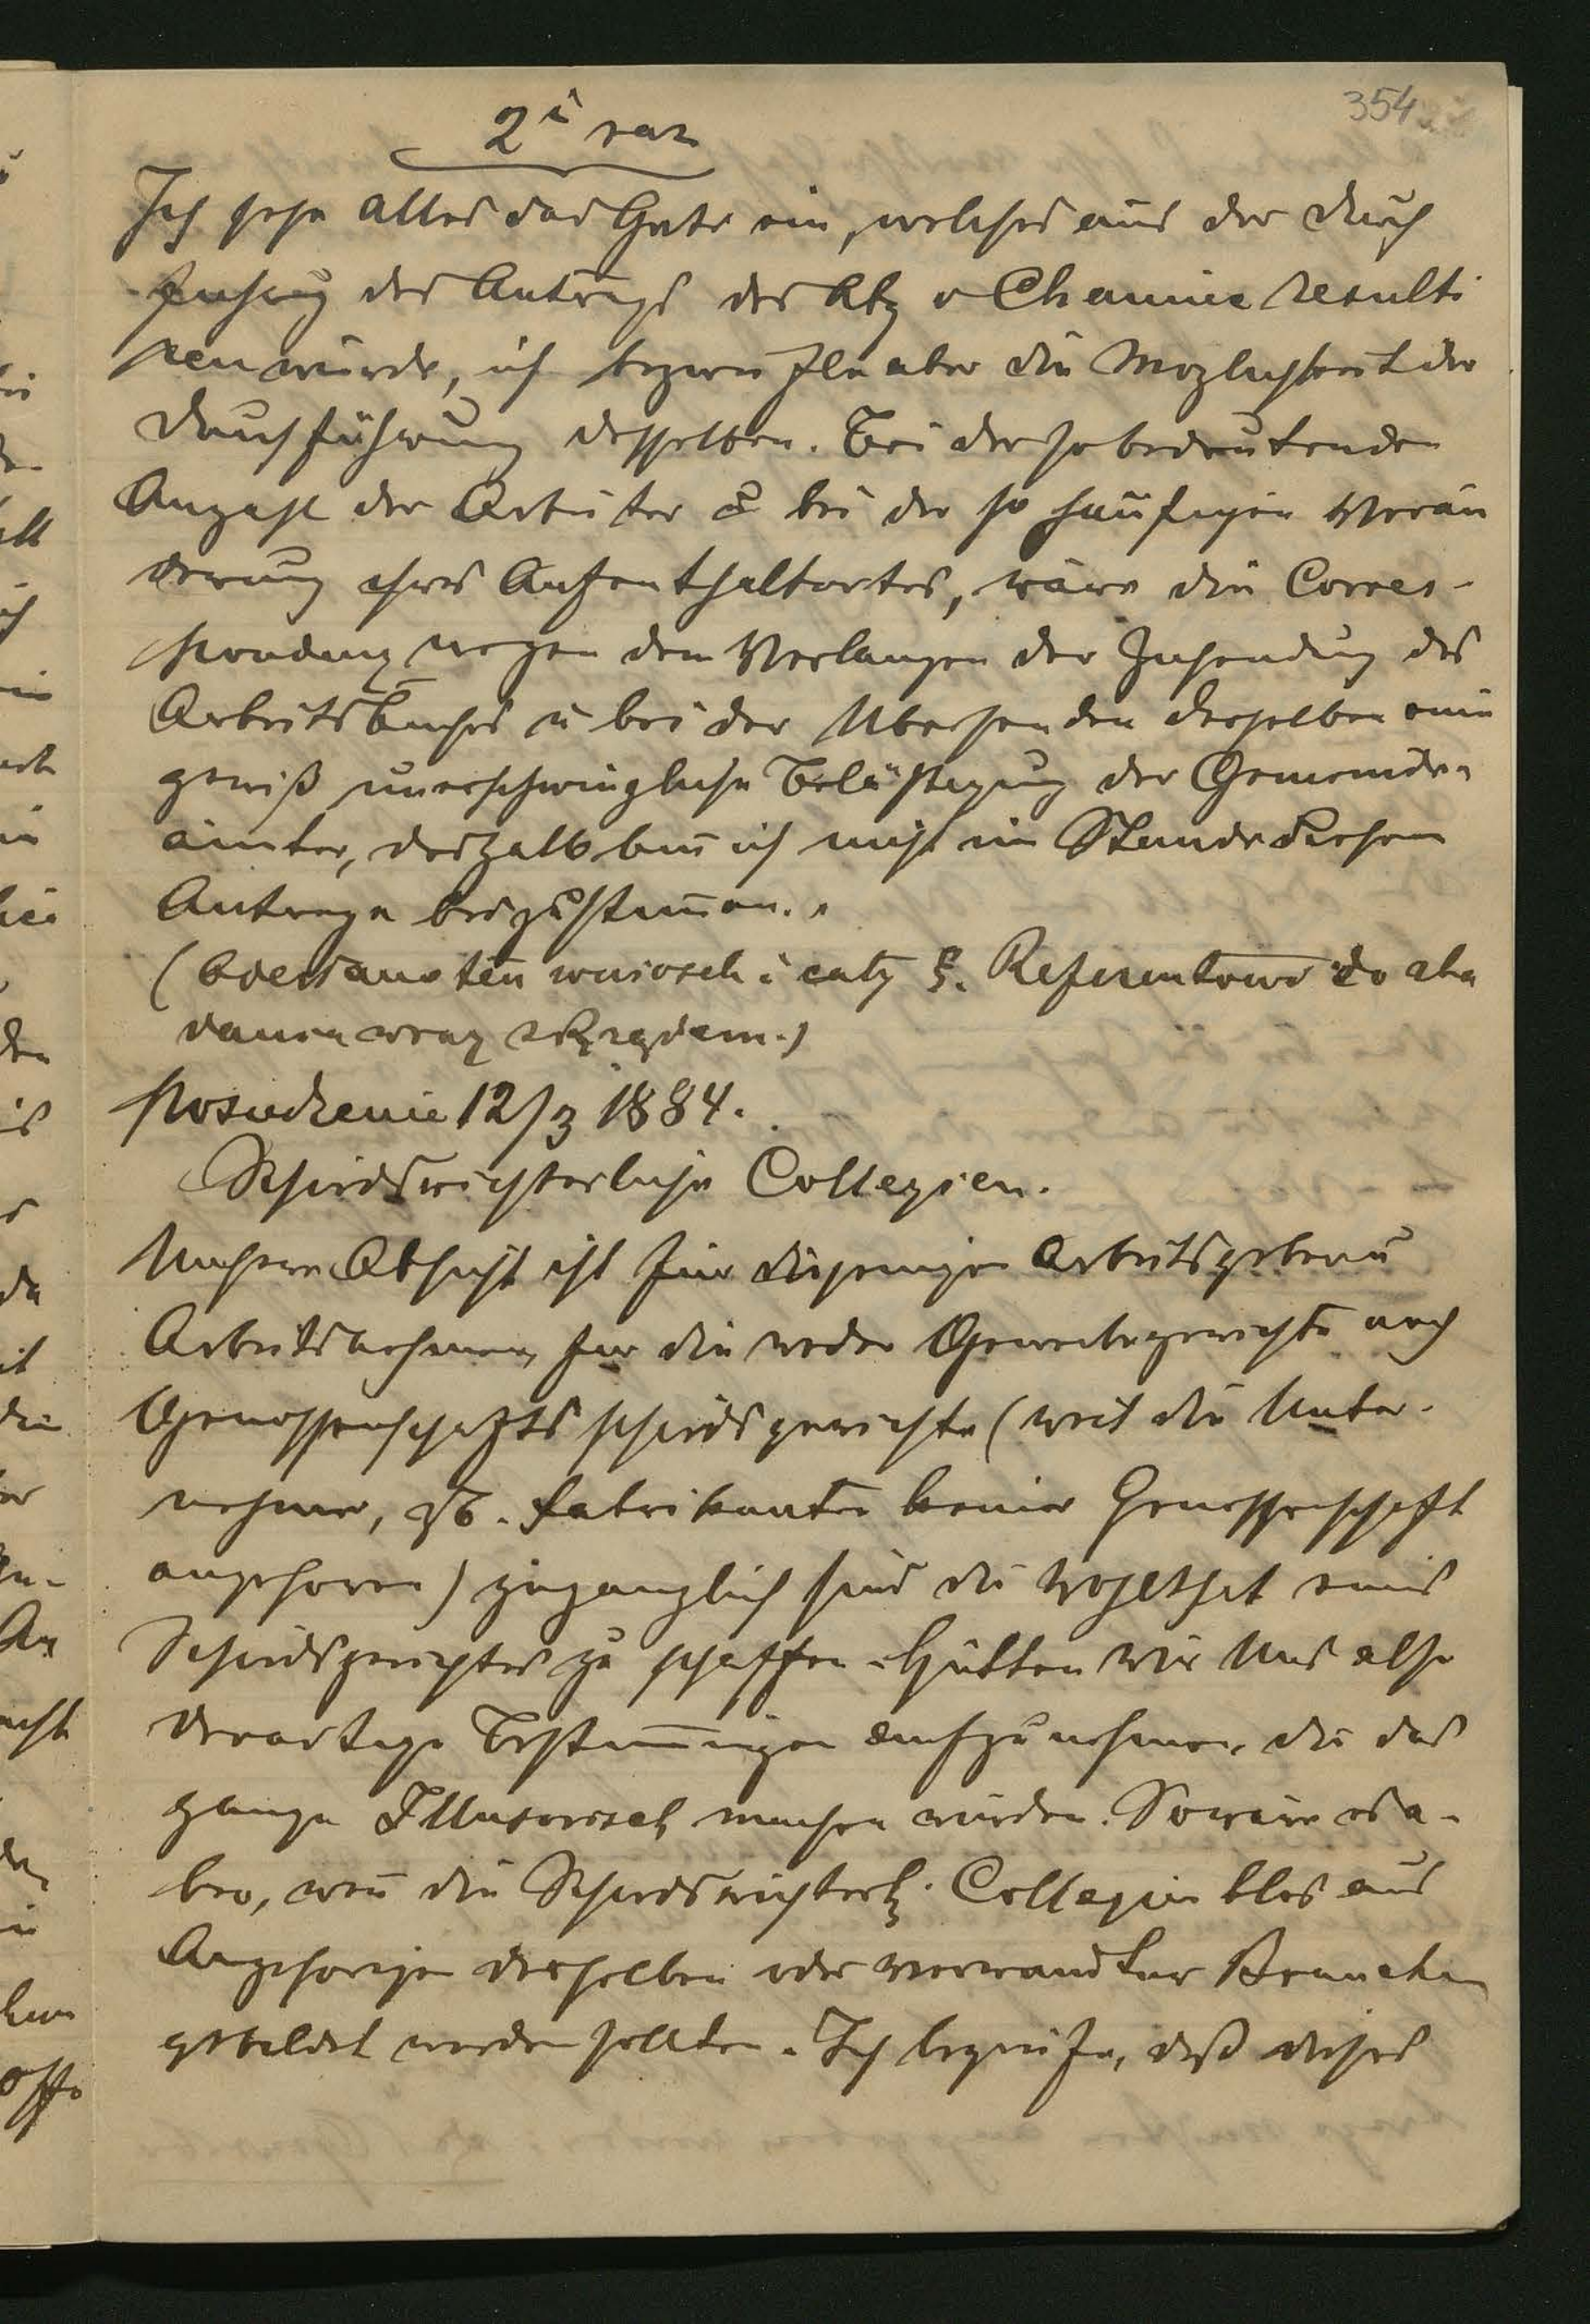 354
2i raz
Ich sehe alles das Gute ein, welches aus der Durch
des Antrags des Abg v Chamiec resulti
ren würde, ich bezweifle aber die Moglichkeit der
Durchführung desselben. Bei der so bedeutenden
Anzahl der Arbeiter & bei der so häufigen Verän
derung ihres Aufenthaltortes, wäre die Corres-
pondenz wegen dem Verlangen der Zusendung des
Arbeitsbuches u bei der Ubersenden desselben eine
gewiß unerschwingliche Belästigung der Gemeinde-
ämter, deshalb bin ich nicht im Stande diesem
Antrage beizustimmen."
(Odesłano ten wniosek i cały §. Referentowi do zba
dania wraz z Rządem.)
Posiedzenie 12/3 1884.
Schiedsrichterliche Collegien.
Unsere Absicht ist für diejenigen Arbeitsgeber u
Arbeitsnehmer, fur die weder Gewerbegerichte noch
Genossenschaftsschiedsgerichte (weil die Unter-
nehmer, zb. Fabrikanten keiner Genossenschaft
angehoren) zuganglich sind die Wohlthat eines
Schiedsgerichtes zu schaffen. Hütten wir Uns also
derartige Bestimmungen aufzunehmen, die das
ganze Illusorisch machen würden. So wäre es a-
ber, wenn die Schiedsrichterl. Collegien blos aus
Angehorigen desselben oder verwandter Branchen
gebildet werden sollten. Ich begreife, daß dieses